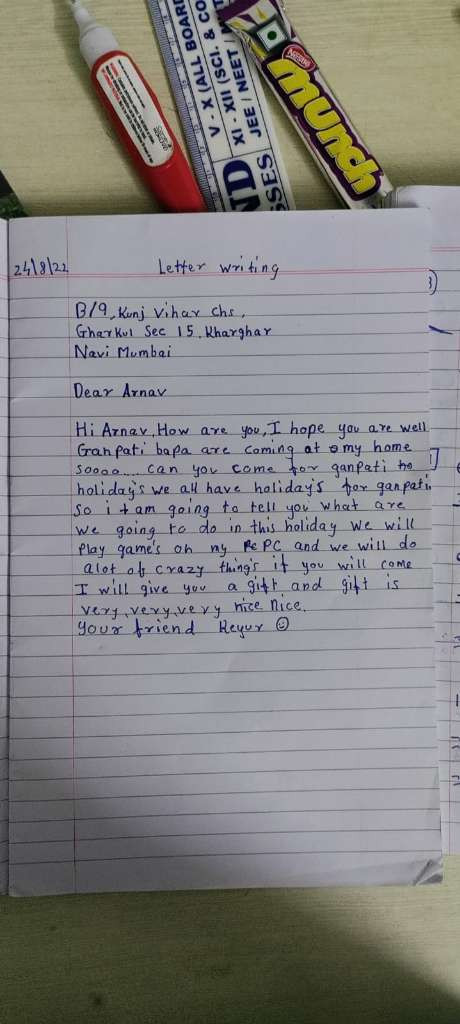 V - X (ALL BOARD
XI - XII (SCI. & CO
JEE / NEET /
ND
SSES
Nestle
munch
24/8/22
Letter writing
B/9, Kunj Vihar Chs,
Gharkul Sec 15, Kharghar
Navi Mumbai
Dear Arnav
Hi Arnav, How are you, I hope you are well
Ganpati bapa are coming at my home
soooo.... can you come for ganpati
holiday's we all have holiday's for ganpati
so i am going to tell you what are
we going to do in this holiday we will
play game's on my PC and we will do
alot of crazy thing's if you will come
I will give you a gift and gift is
very, very, very nice nice.
your friend Keyur